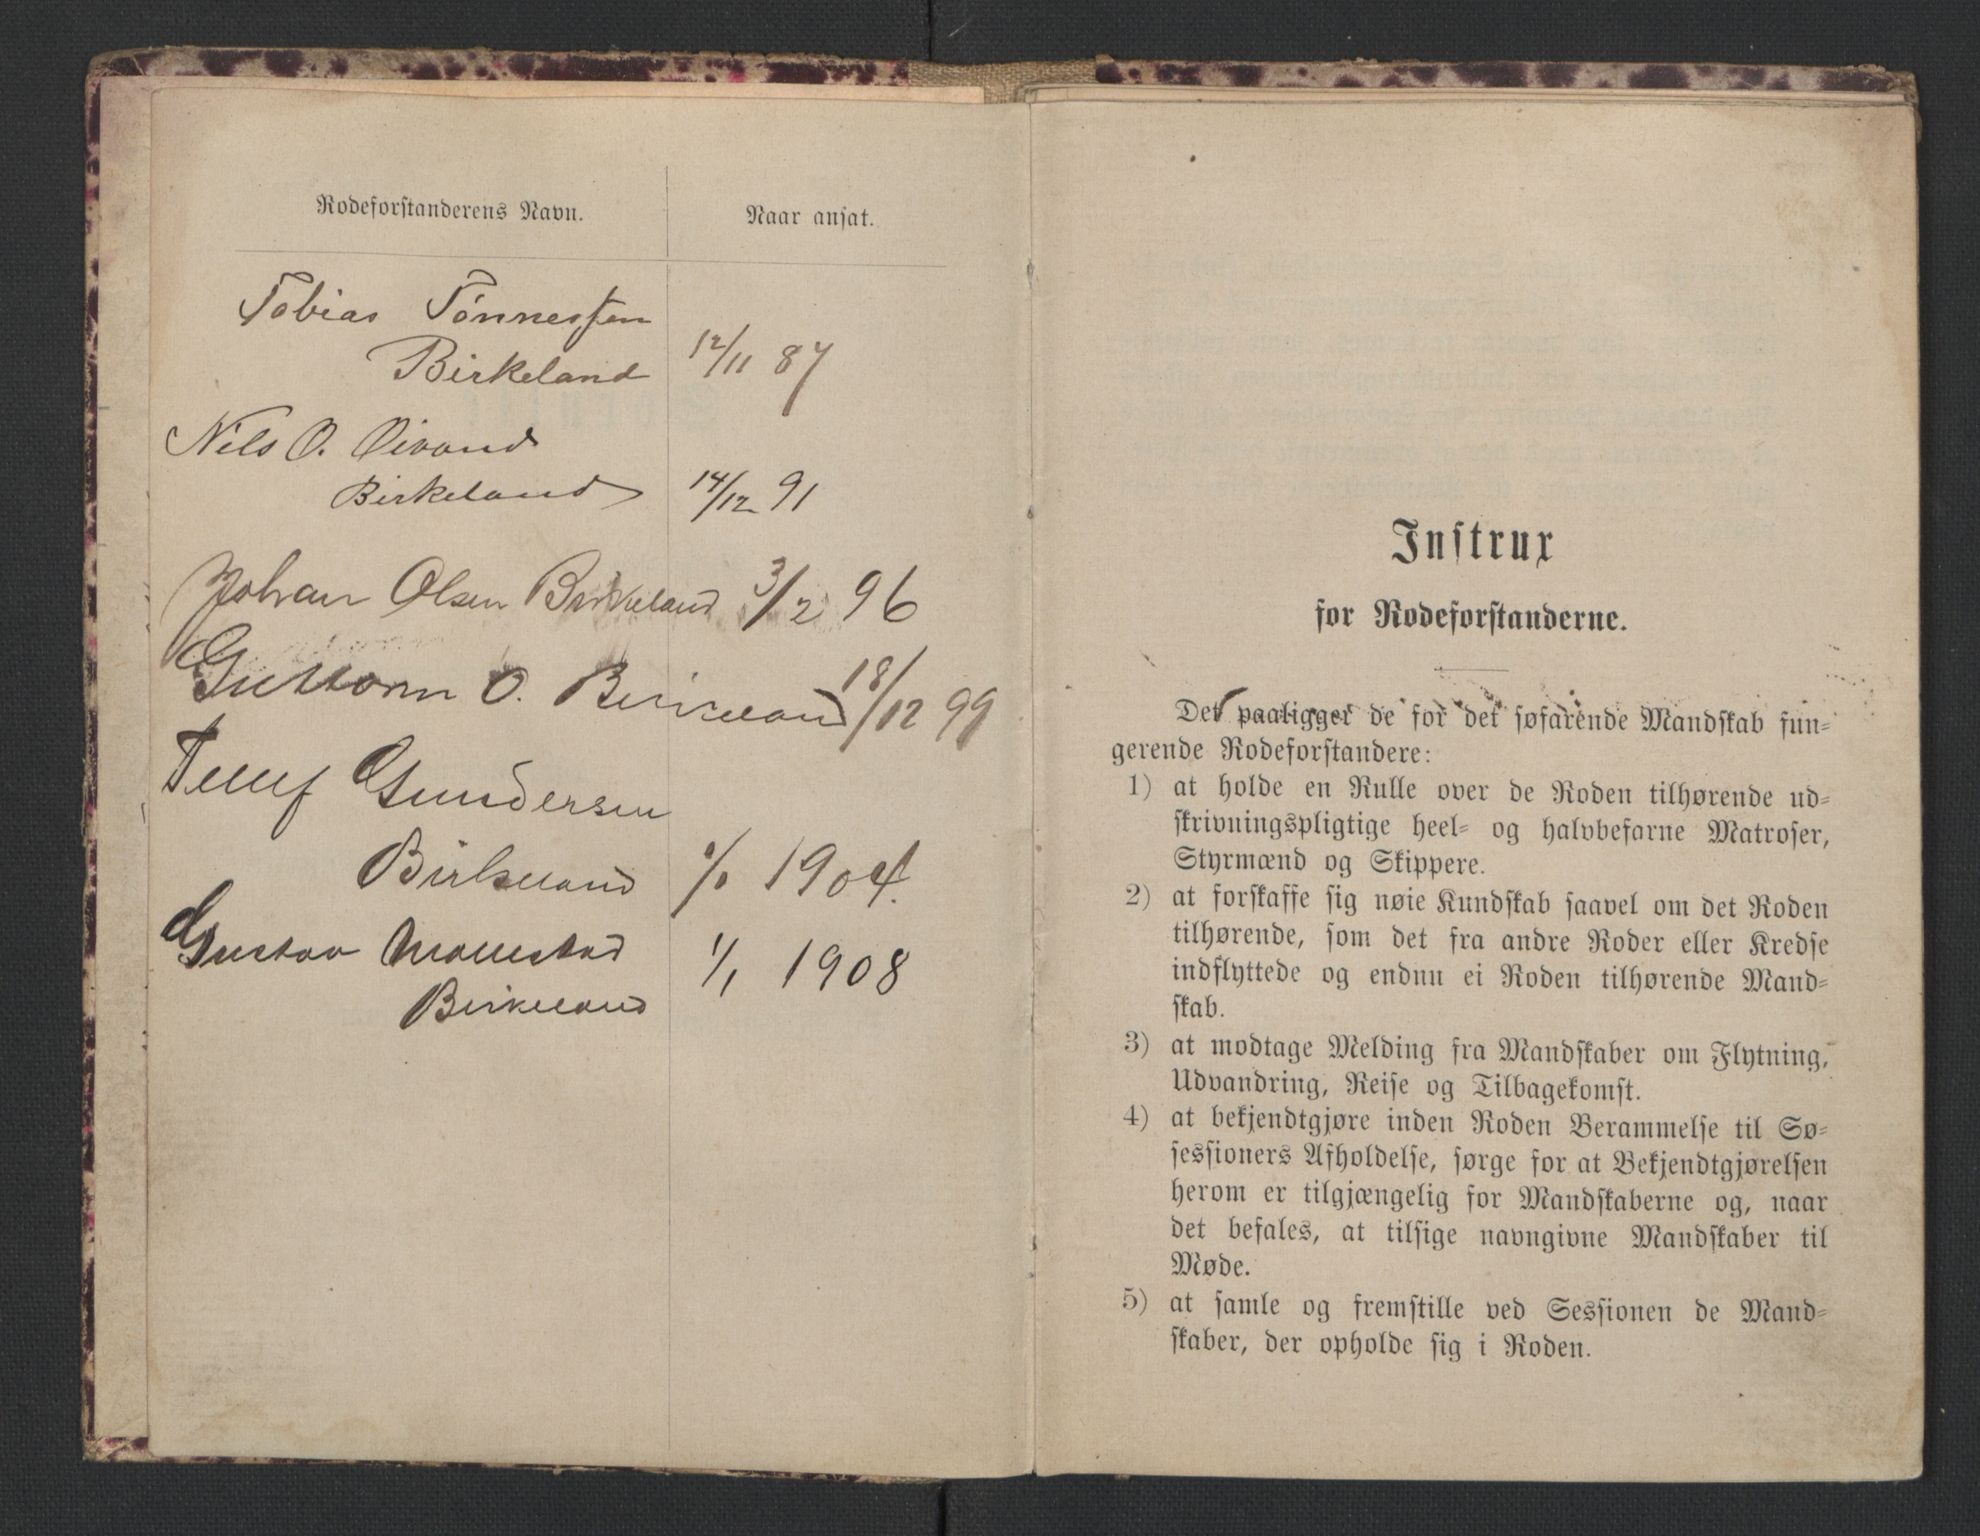 Rodeforstanderens Navn.
Naar ansat.
Tobias Tönnessen
Birkeland 12/11 87
Nils O. Oivand
Birkeland 14/12 91
Johan Olsen Birkeland 3/2 96
Guttorm O. Birkeland 18/12 99
Tellef Gundersen
Birkeland 1904.
Gustav Mollestad
Birkeland 1/1 1908
Instrux
for Rodeforstanderne.
Det paaligger de for det søfarende Mandskab fun-
gerende Rodeforstandere:
1) at holde en Rulle over de Roden tilhørende ud-
skrivningspligtige heel- og halvbefarne Matroser,
Styrmænd og Skippere.
2) at forskaffe sig nøie Kundskab saavel om det Roden
tilhørende, som det fra andre Roder eller Kredse
indflyttede og endnu ei Roden tilhørende Mand-
skab.
3) at modtage Melding fra Mandskaber om Flytning,
Udvandring, Reise og Tilbagekomst.
4) at bekjendtgjøre inden Roden Berammelse til Sø-
sessioners Afholdelse, sørge for at Bekjendtgjørelsen
herom er tilgjængelig for Mandskaberne og, naar
det befales, at tilsige navngivne Mandskaber til
Møde.
5) at samle og fremstille ved Sessionen de Mand-
skaber, der opholde sig i Roden.